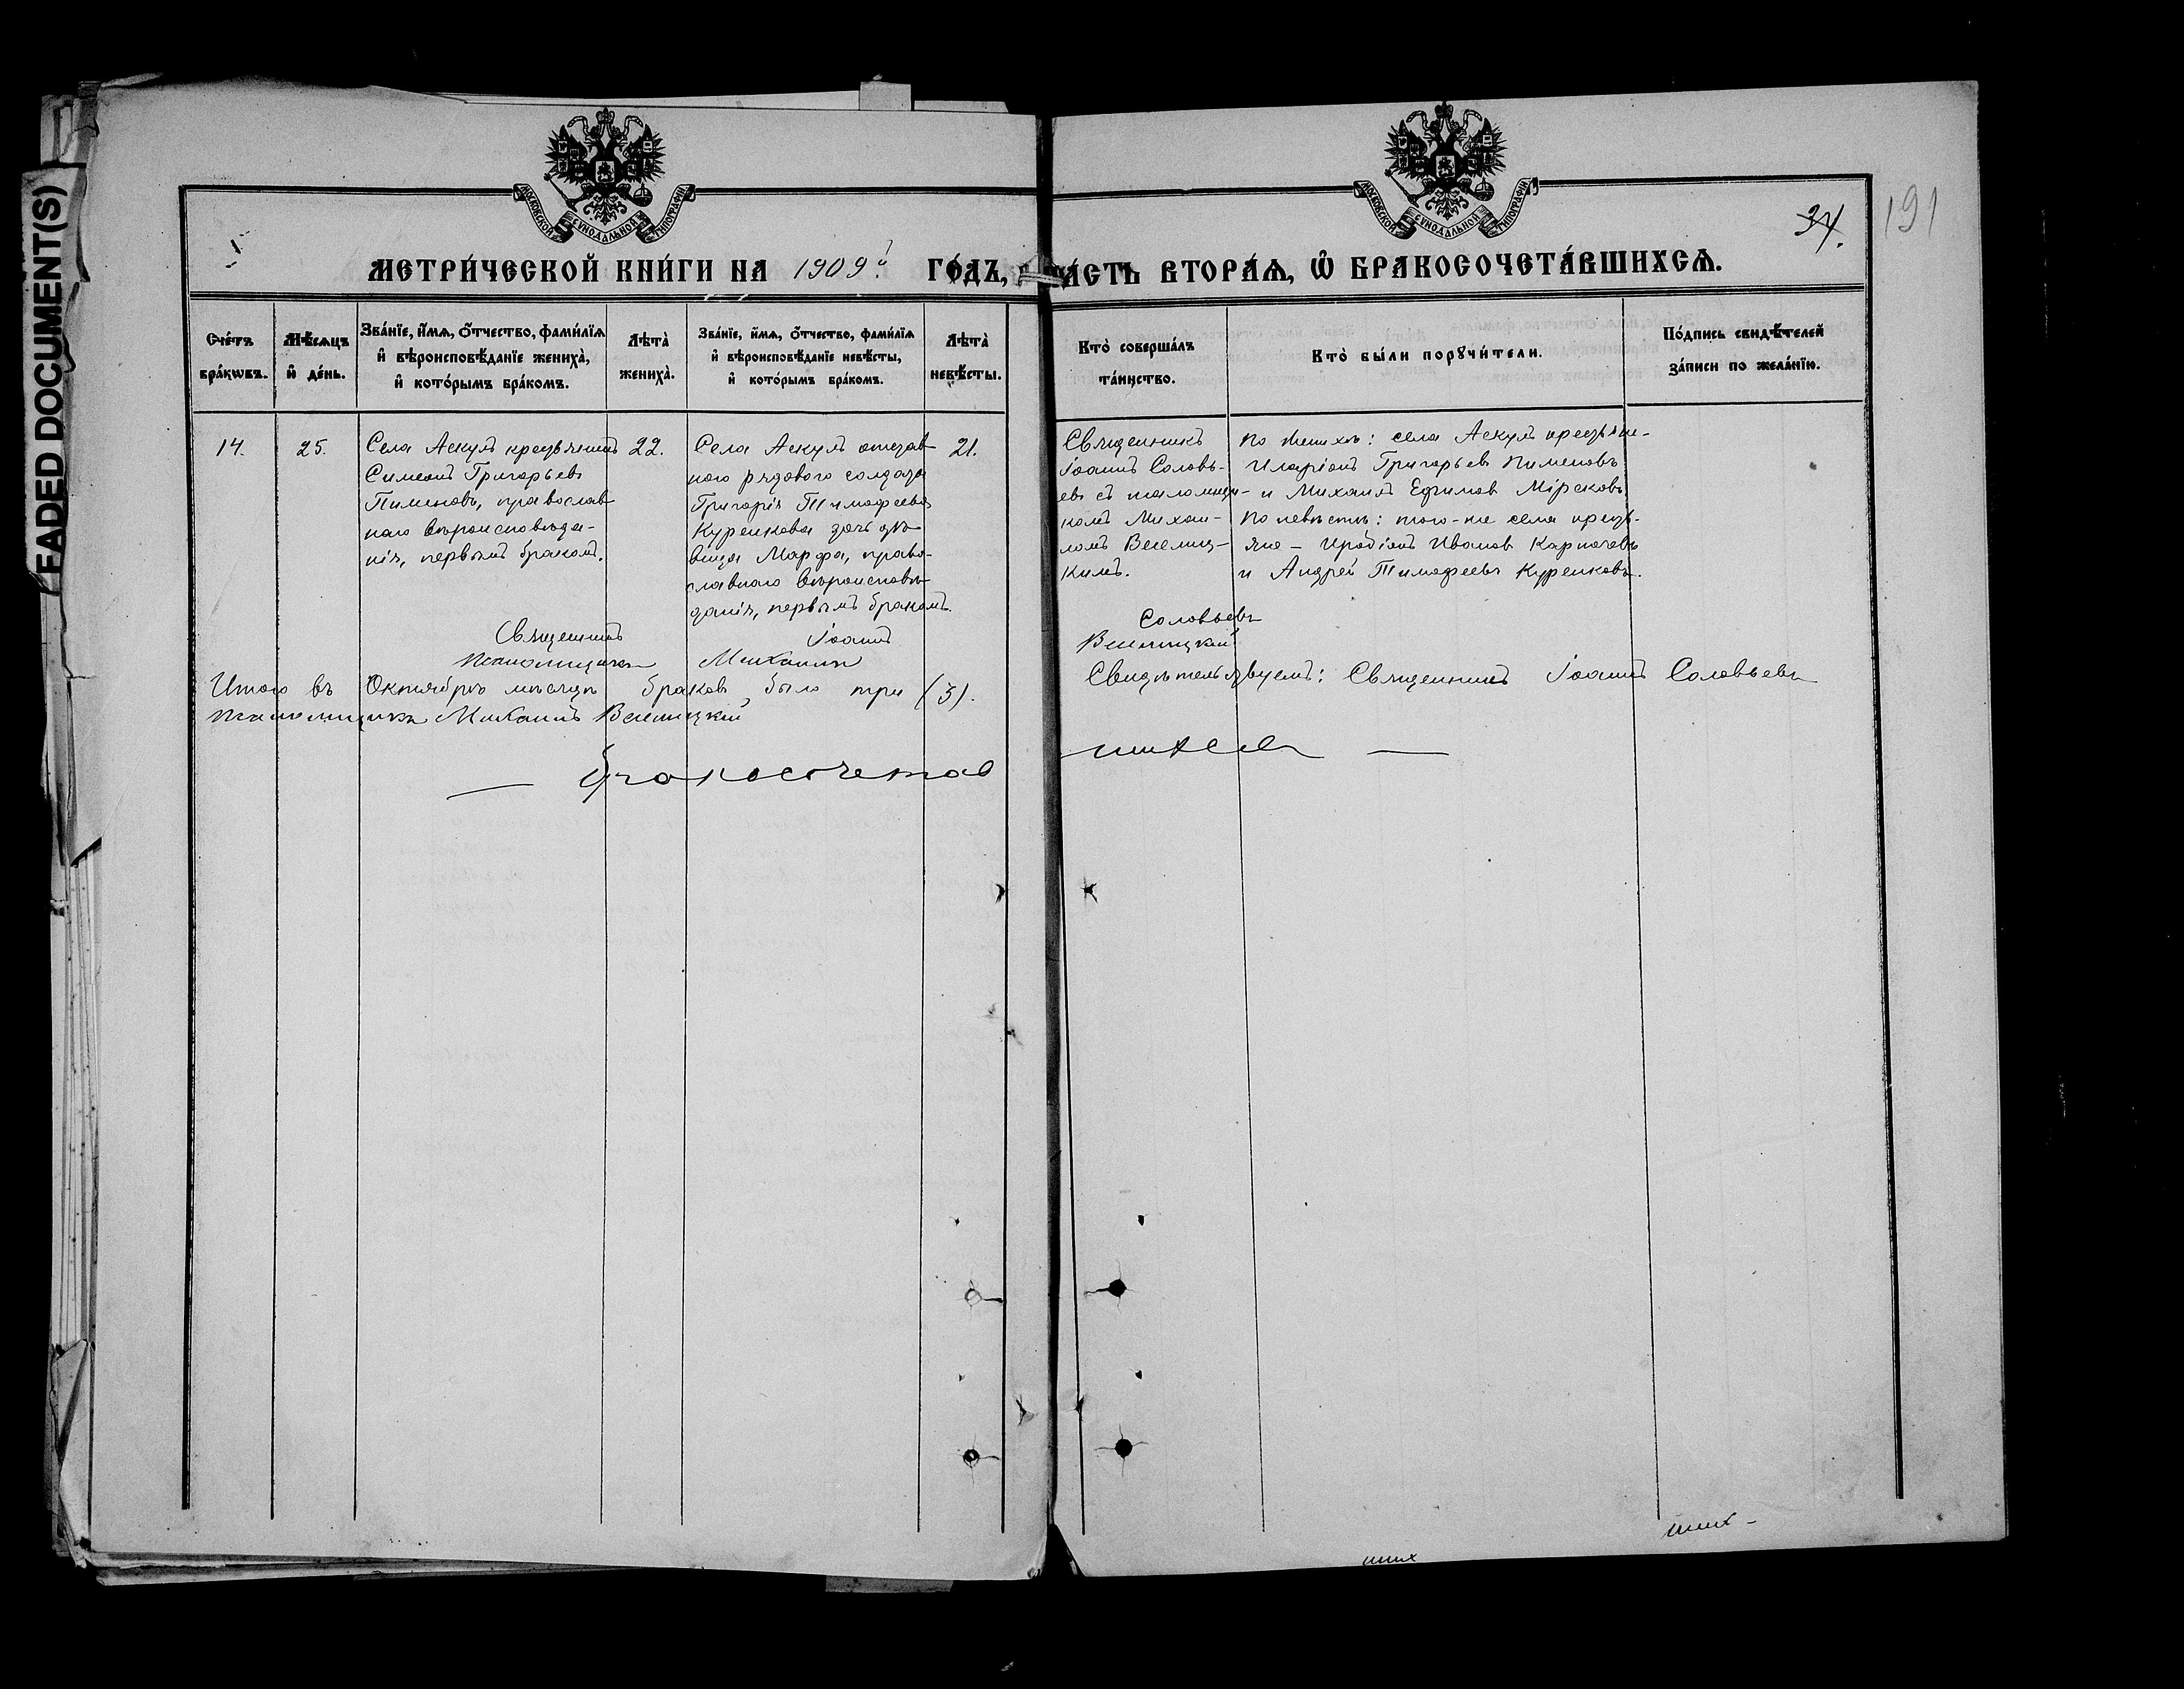 FADED DOCUMENT(S)
МОСКОВСКОЙ СѴНОДАЛЬНОЙ ТИПОГРАФІИ
МОСКОВСКОЙ СѴНОДАЛЬНОЙ ТИПОГРАФІИ
34.
191
МЕТРИ́ЧЕСКОЙ КНИ́ГИ НА 1909й ГО́ДЪ, ЧА́СТЬ ВТОРА́Ѧ, Ѽ БРАКОСОЧЕТА́ВШИХСѦ.
Сче́тъ бра́кѡвъ.
Мѣ́сѧцъ и҆ де́нь.
Зва́нїе, и҆́мѧ, ѻ҆́тчество, фами́лїѧ и҆ вѣроисповѣ́данїе жениха̀, и҆ кото́рымъ бра́комъ.
Лѣ́та̀ жениха̀.
Зва́нїе, и҆́мѧ, ѻ҆́тчество, фами́лїѧ и҆ вѣроисповѣ́данїе невѣ́сты, и҆ кото́рымъ бра́комъ.
Лѣ́та̀ невѣ́сты.
Кто̀ соверша́лъ та́инство.
Кто̀ бы́ли порꙋчи́тели.
По́дпись свидѣ́телей за́писи по жела́нїю.
14.
25.
Села Аскулъ крестьянинъ
Симеонъ Григорьевъ
Пименовъ, православ
наго вѣроисповѣда-
нія, первымъ бракомъ.
22.
Села Аскулъ отстав
ного рядового солдата
Григорія Тимофеева
Куренкова дочь дѣ-
вица Марфа, право-
славнаго вѣроисповѣ-
данія, первымъ бракомъ.
21.
Священникъ
Іоаннъ Соловь-
евъ съ псаломщи-
комъ Михаи-
ломъ Веселиц-
кимъ.
По женихѣ: села Аскулъ крестьяне-
Иларіонъ Григорьевъ Пименовъ
и Михаилъ Ефимовъ Мірсковъ
По невѣстѣ: того-же села кресть-
яне - Иродіонъ Ивановъ Карпочевъ
и Андрей Тимофеевъ Куренковъ.
Священникъ Іоаннъ Соловьевъ
Псаломщикъ Михаилъ Веселицкій
Итого въ Октябрѣ мѣсяцѣ браковъ было три (3). Свидѣтельствуемъ: Священникъ Іоаннъ Соловьевъ
Псаломщикъ Михаилъ Веселицкій
— бракосочетав
шихся —
ших
ших-